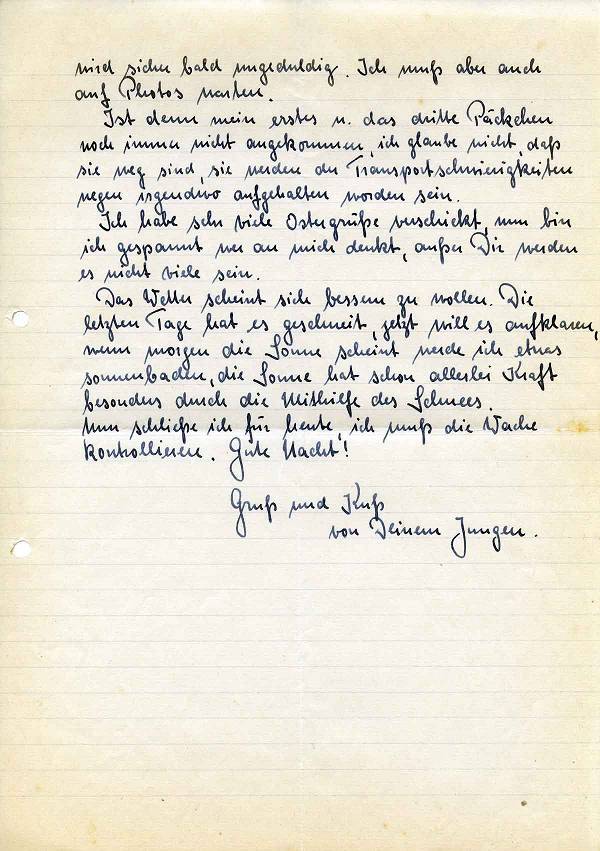 wird sicher bald ungeduldig. Ich muß aber auch
auf Photos warten.
Ist denn mein erstes u. das dritte Päckchen
noch immer nicht angekommen, ich glaube nicht, daß
sie weg sind, sie werden der Transportschwierigkeiten
wegen irgendwo aufgehalten worden sein.
Ich habe sehr viele Ostergrüße verschickt, nun bin
ich gespannt wer an mich denkt, außer Dir werden
es nicht viele sein.
Das Wetter scheint sich bessern zu wollen. Die
letzten Tage hat es geschneit, jetzt will es aufklaren,
wenn morgen die Sonne scheint werde ich etwas
sonnenbaden, die Sonne hat schon allerlei Kraft
besonders durch die Mithilfe des Schnees.
Nun schließe ich für heute, ich muß die Wache
kontrollieren. Gute Nacht!
Gruß und Kuß
von Deinem Jungen.